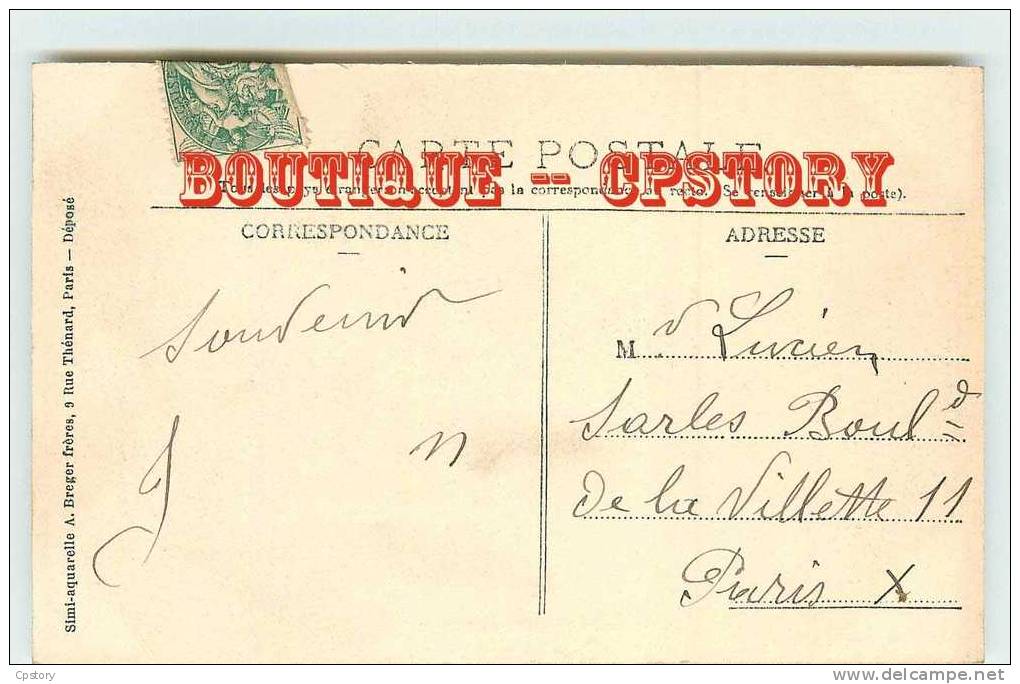 CARTE POSTALE
BOUTIQUE -- CPSTORY
Tous les pays étrangers n'acceptent pas la correspondance au recto. Se renseigner à la poste).
CORRESPONDANCE
Souvenir
J n
ADRESSE
M r Lucien
Sarles Boul d
De la Villette 11
Paris X
Simi-aquarelle A. Breger frères, 9 Rue Thénard, Paris — Déposé
Cpstory
delcampe.net